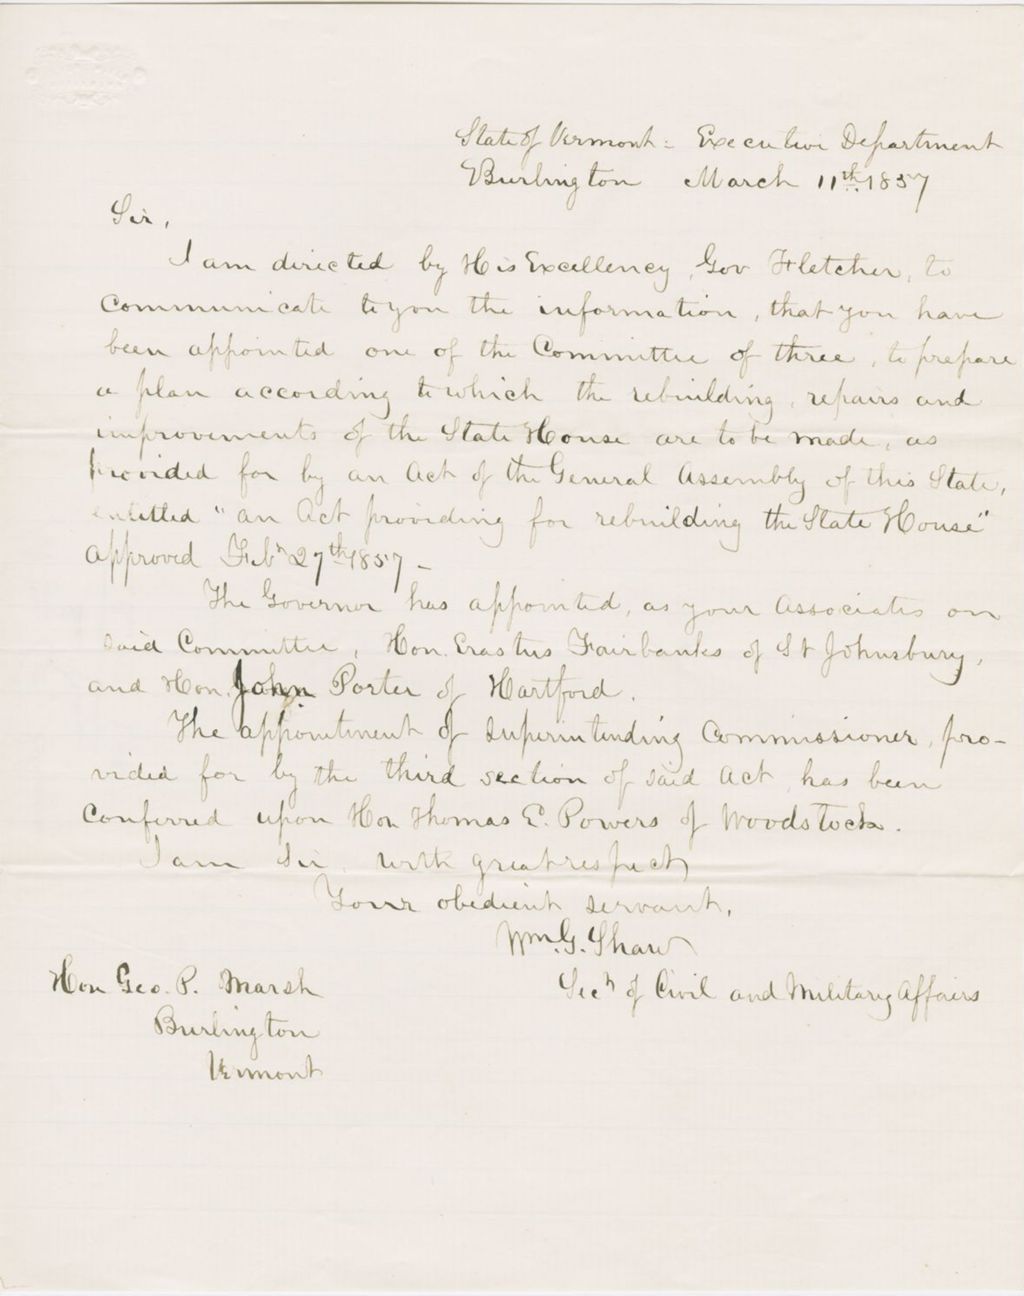 State of Vermont = Executive Department
Burlington March 11th 1857
Sir,
I am directed by His Excellency, Gov Fletcher, to
communicate to you the information, that you have
been appointed one of the Committee of three, to prepare
a plan according to which the rebuilding, repairs and
improvements of the State House are to be made, as
provided for by an Act of the General Assembly of this State,
entitled "an Act providing for rebuilding the State House"
approved Feby 27th 1857 -
The Governor has appointed, as your Associates on
said Committee, Hon. Erastus Fairbanks of St Johnsbury,
and Hon. John Porter of Hartford.
The appointment of Superintending Commissioner, pro-
vided for by the third section of said Act, has been
conferred upon Hon Thomas E. Powers of Woodstock.
I am Sir, with great respect
Your obedient servant,
Wm. G. Shaw
Secy of Civil and Military Affairs
Hon Geo. P. Marsh
Burlington
Vermont